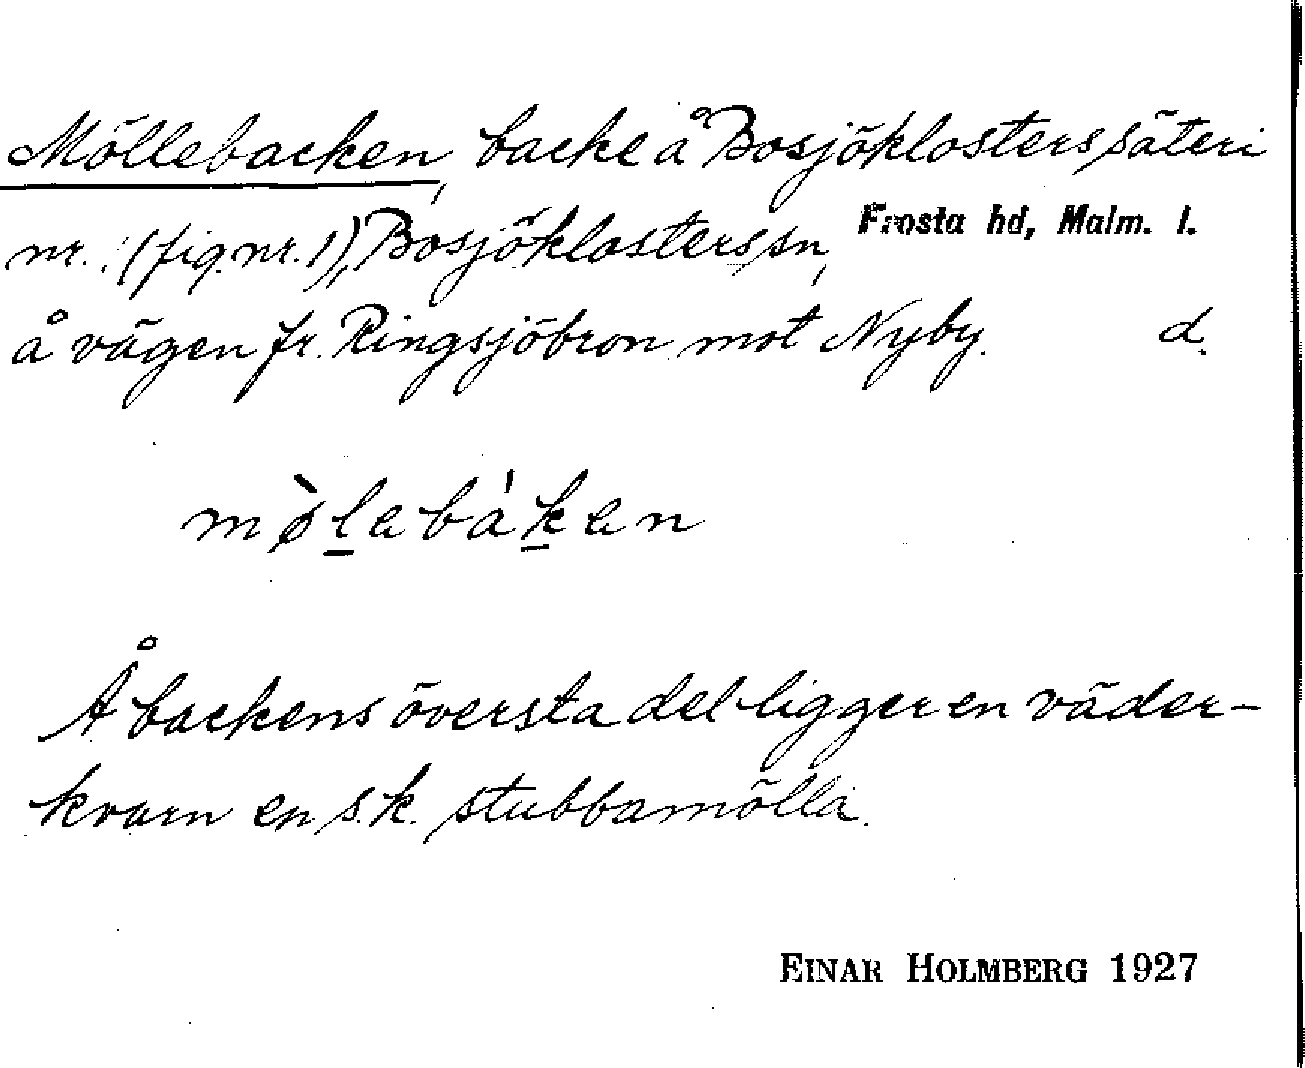 Möllebacken, backe å Bosjöklosters säteri
nr. (fig. nr. 1), Bosjöklosters sn, Frosta hd, Malm. l.
å vägen fr. Ringsjöbron mot Nyby. d.
mø̀l̲ebák̲en
Å backens översta del ligger en väder-
kvarn en s.k. stubbamölla.
EINAR HOLMBERG 1927